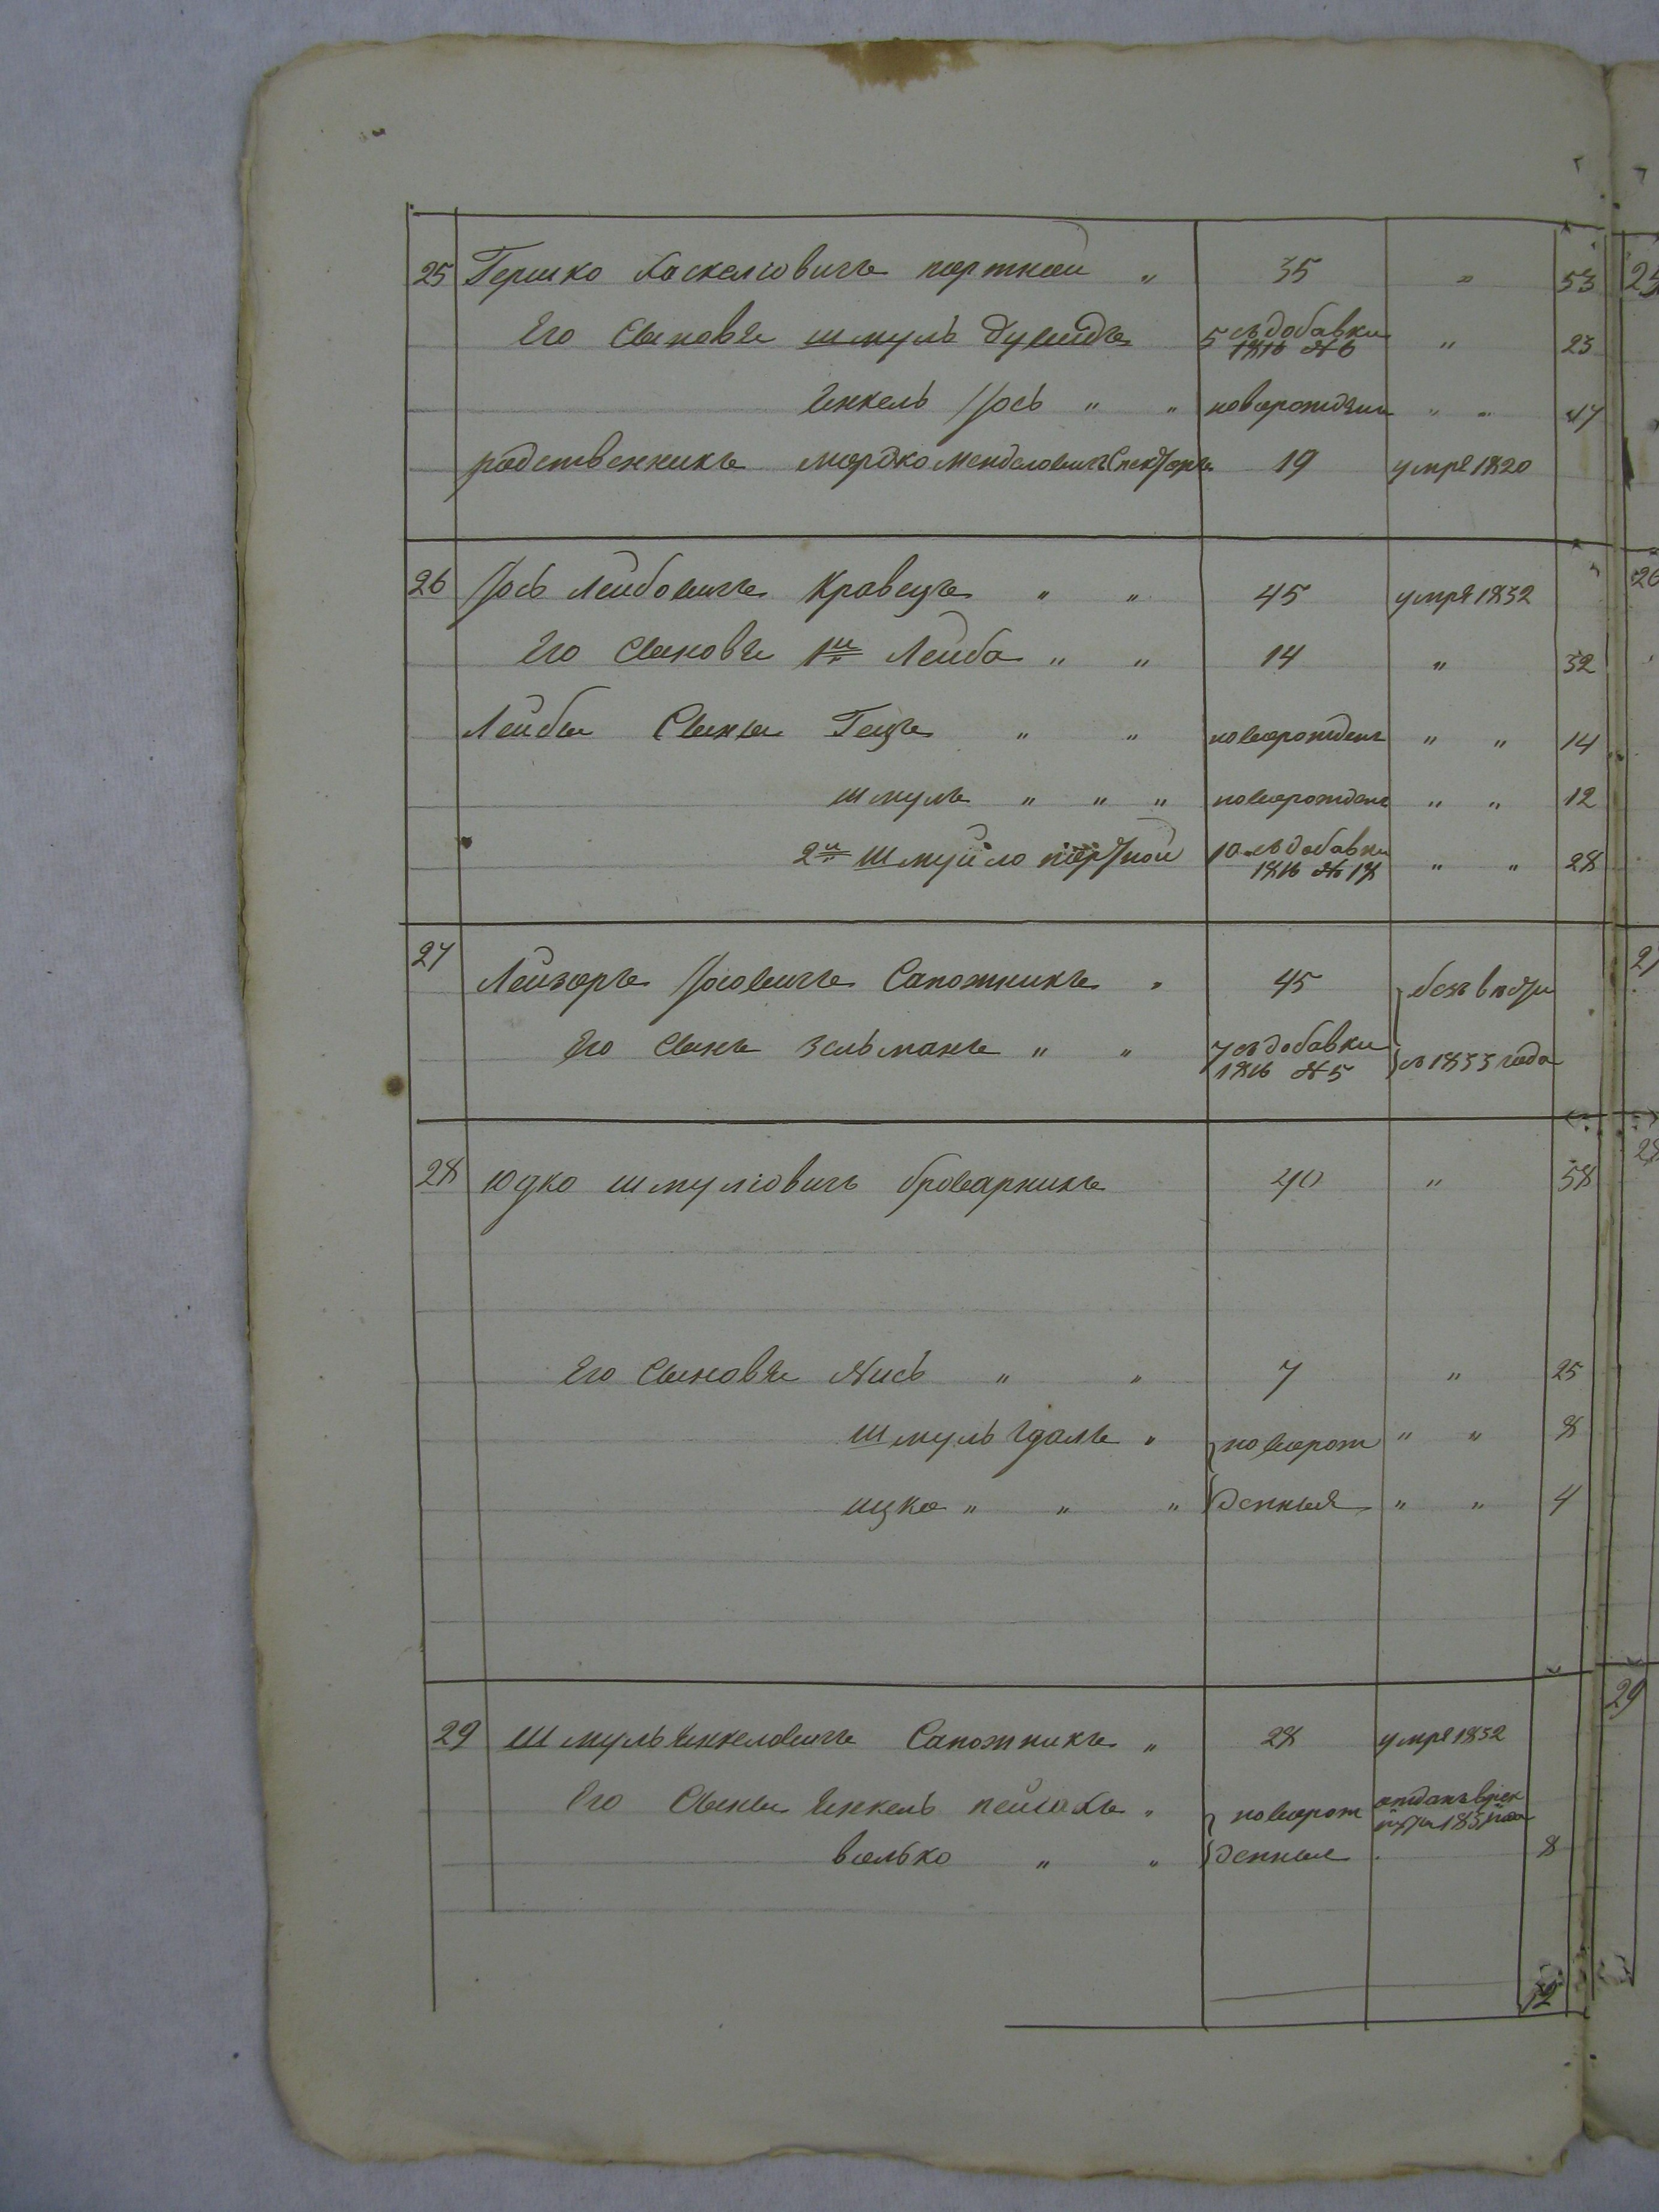 25 Гершко Хаскелювичъ портной „ 35 „ 53
Его Сыновья шмуль Дувидъ 5 съ добавки 1816 № 6 „ 23
Янкель Іось „ „ новорожден „ „ 17
родственникъ мордко менделовичъ Спекторъ 19 умре 1820
26 Іось Лейбовичъ Кравецъ „ „ 45 умре 1832
Его Сыновья 1й Лейба „ „ 14 „ 32
Лейбы Сыны Гецъ „ „ новорожденъ „ „ 14
шмуль „ „ „ новорожденъ „ „ 12
2й Шмуйло портной 10 съ добавки 1816 № 18 „ „ 28
27 Лейзоръ Іосовичъ Сапожникъ „ 45 безъ вести
Его Сынъ Зельманъ „ „ 7 съ добавки 1816 № 5 съ 1833 года
28 Юдко шмулювичъ броварникъ 40 „ 58
Его Сыновья Нись „ „ 7 „ 25
шмуль Гдаль „ новорож „ „ 8
ицко „ „ „ денныя „ „ 4
29 Шмуль Янкеловичъ Сапожникъ „ 28 умре 1832
Его Сыны Янкель пейсахъ „ новорож отданъ в рек руты 1831 года
волько „ „ денные 8
12